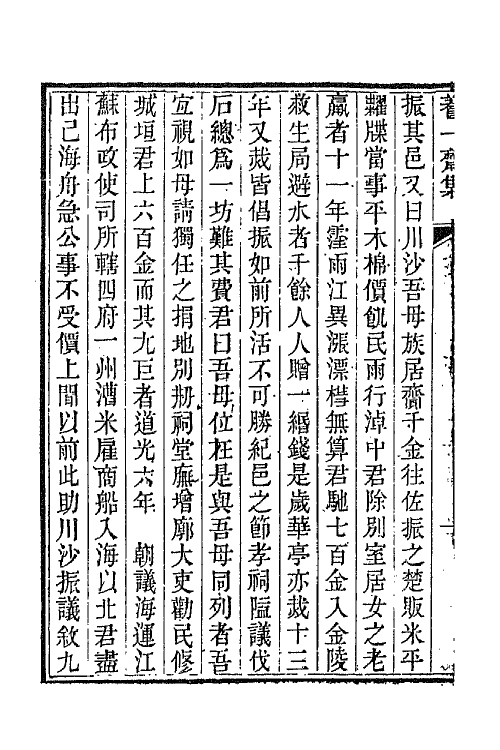 養一齋集
振其邑又曰川沙吾母族居齎千金往佐振之楚販米平
糶牒當事平木棉價飢民雨行淖中君除別室居女之老
羸者十一年霪雨江異漲漂槥無算君馳七百金入金陵
救生局避水者千餘人人贈一緡錢是歲華亭亦烖十三
年又烖皆倡振如前所活不可勝紀邑之節孝祠隘議伐
石總爲一坊難其費君曰吾母位在是與吾母同列者吾
宜視如母請獨任之捐地別剏祠堂廡增廓大吏勸民修
城垣君上六百金而其九巨者道光六年 朝議海運江
蘇布政使司所轄四府一州漕米雇商船入海以北君盡
出己海舟急公事不受價上聞以前此助川沙振議敘九